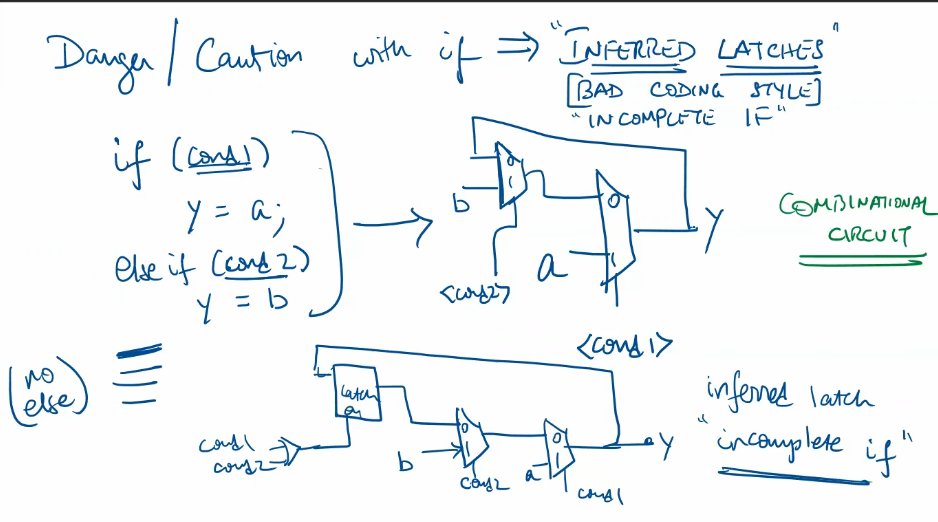 Danger/Caution with if ⇒ "INFERRED LATCHES"
[BAD CODING STYLE]
"INCOMPLETE IF"
if (cond1)
y = a;
else if (cond2)
y = b
(no else)
0
1
b
<cond2>
0
1
a
<cond1>
Y
COMBINATIONAL
CIRCUIT
latch
en
cond1
cond2
0
1
b
cond2
0
1
a
cond1
Y
inferred latch
"incomplete if"